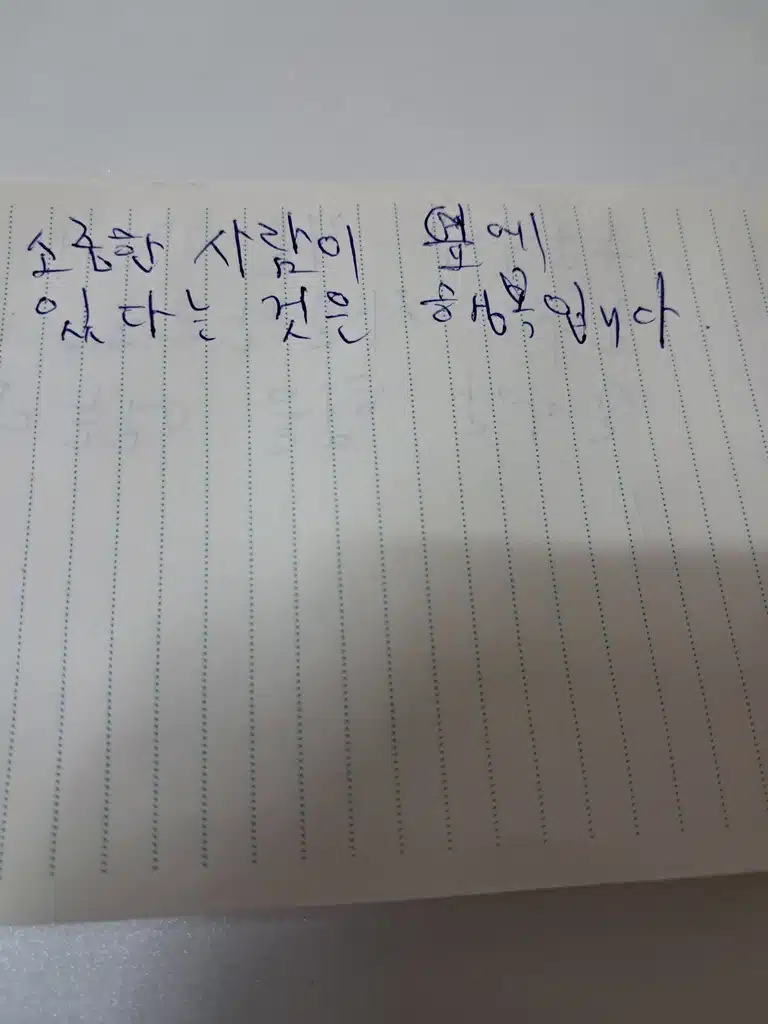 소중한 사람이 옆에
있다는 것은 행복입니다.